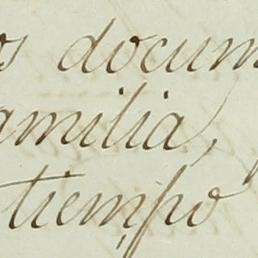 os docum
amilia,
tiempo